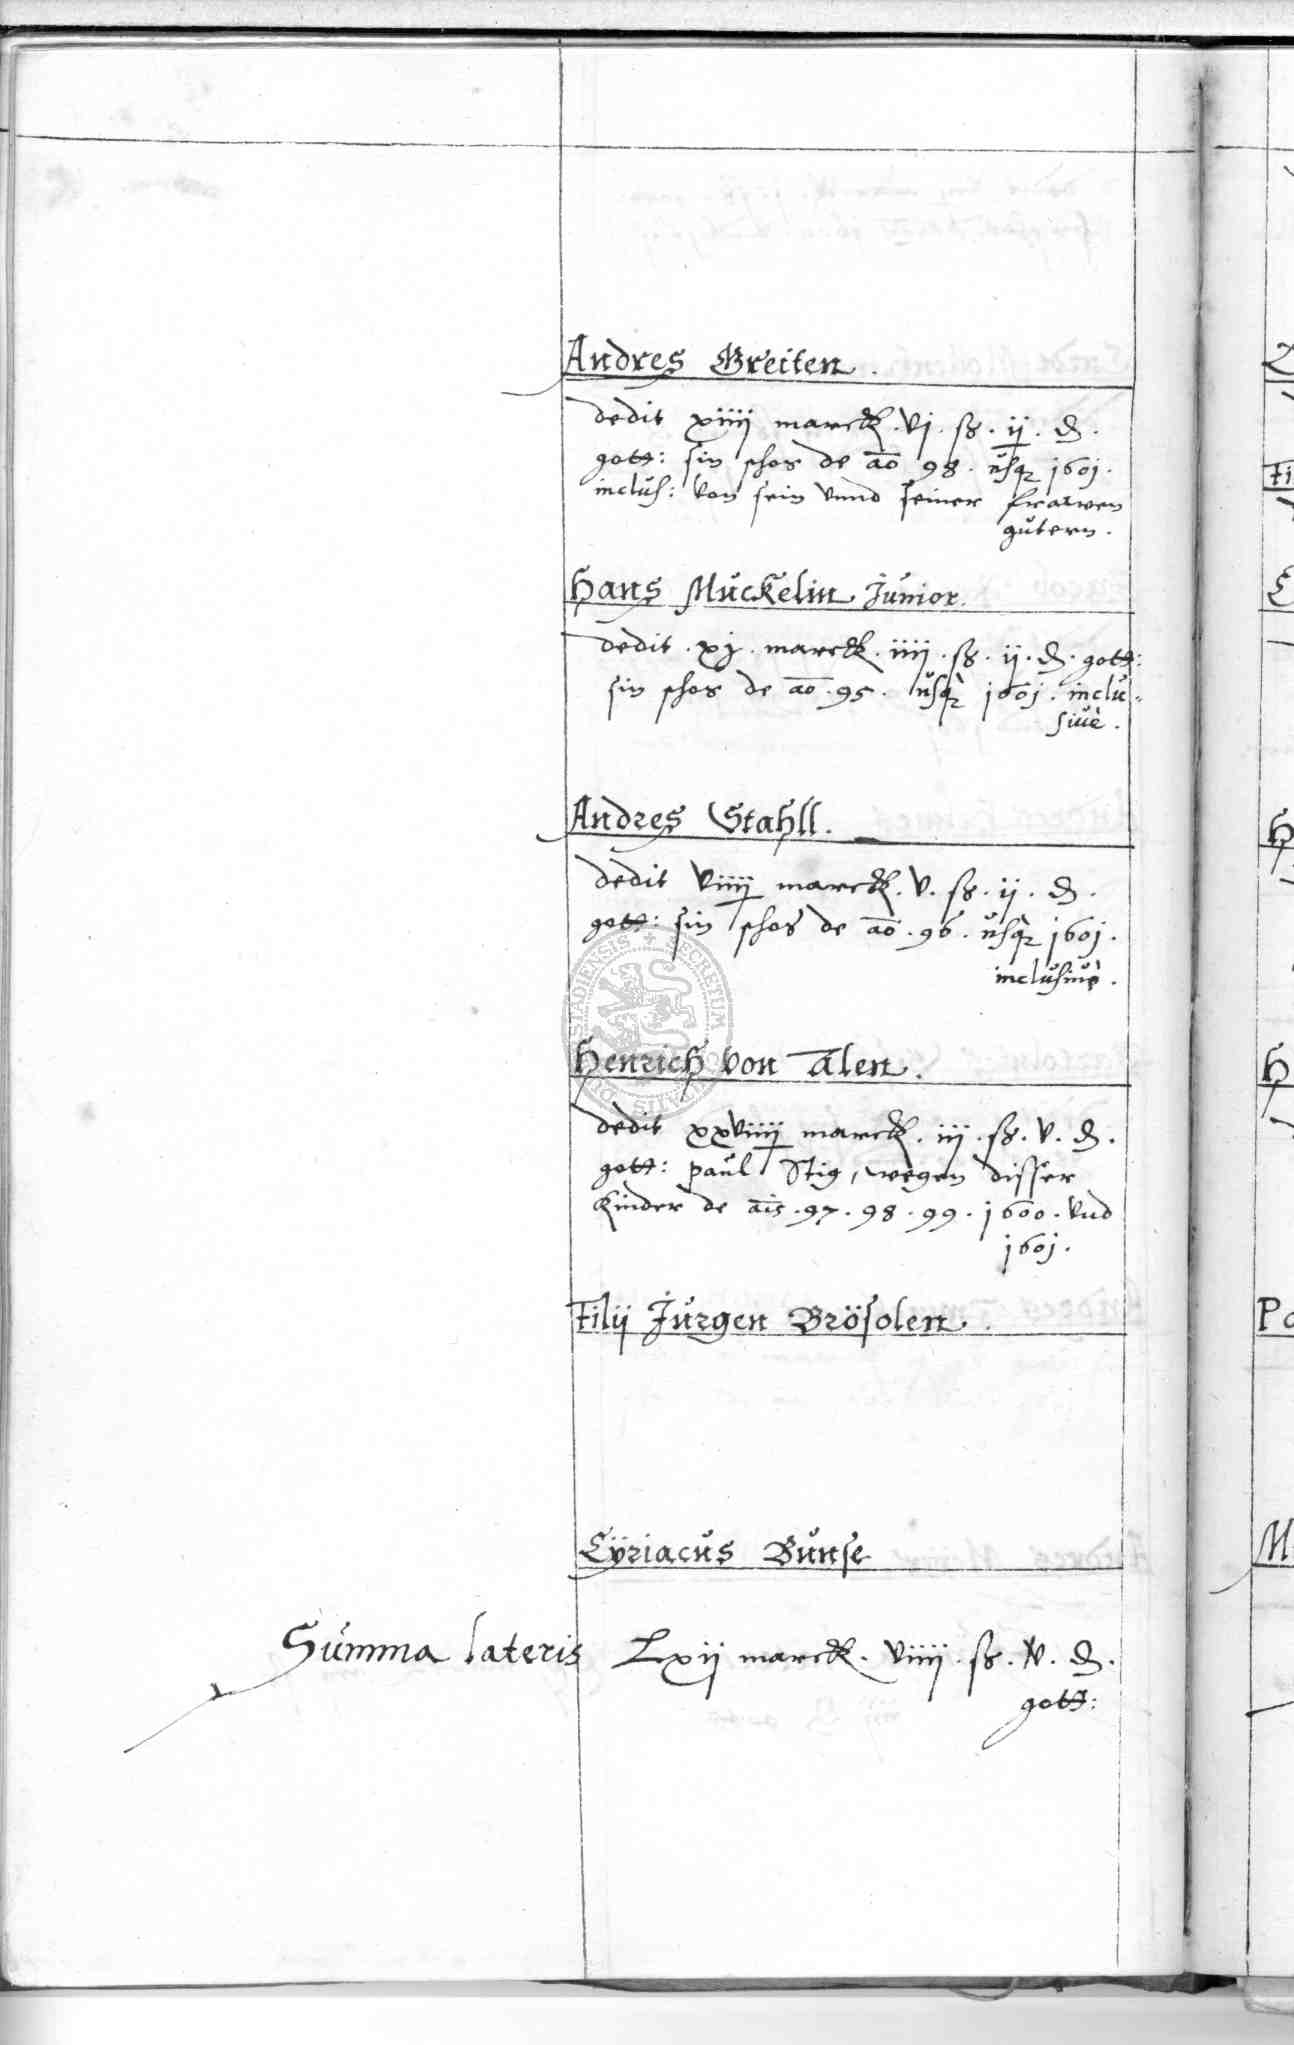 Andres Greiten.
dedit xiiij marck. vj. ß. ij. ₰.
gott: sin schos de ao 98. usq 1601.
inclus: von sein vnnd seiner frawen
gutern.
Hans Muckelin Junior.
dedit. xj. marck. iiij. ß. ij. ₰. gott:
sin schos de ao. 95. usq 1601. inclu-
sivè.
Andres Stahll.
dedit viiij marck. v. ß. ij. ₰.
gott: sin schos de ao. 96. usq 1601.
inclusivè.
Henrich von Alen.
dedit xxviiij marck. iij. ß. v. ₰.
gott: paul Stig, wegen disser
Kinder de ais. 97. 98. 99. 1600. vnd
1601.
Filij Jurgen Brösolen.
Cÿriacus Bunse
Summa lateris Lxij marck. viiij. ß. v. ₰.
gott: